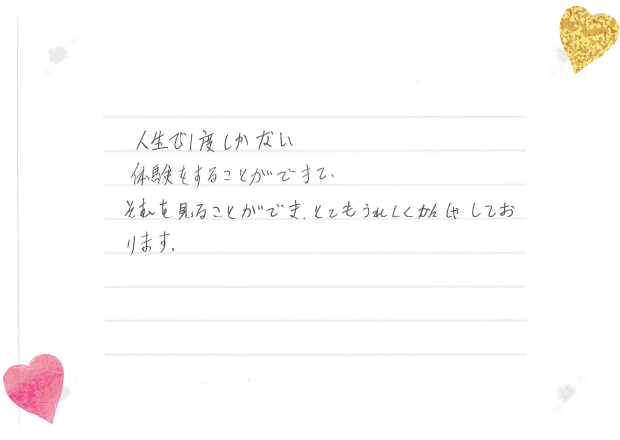 人生で1度しかない
体験をすることができて、
それを見ることができ、とてもうれしくかんしゃしてお
ります。